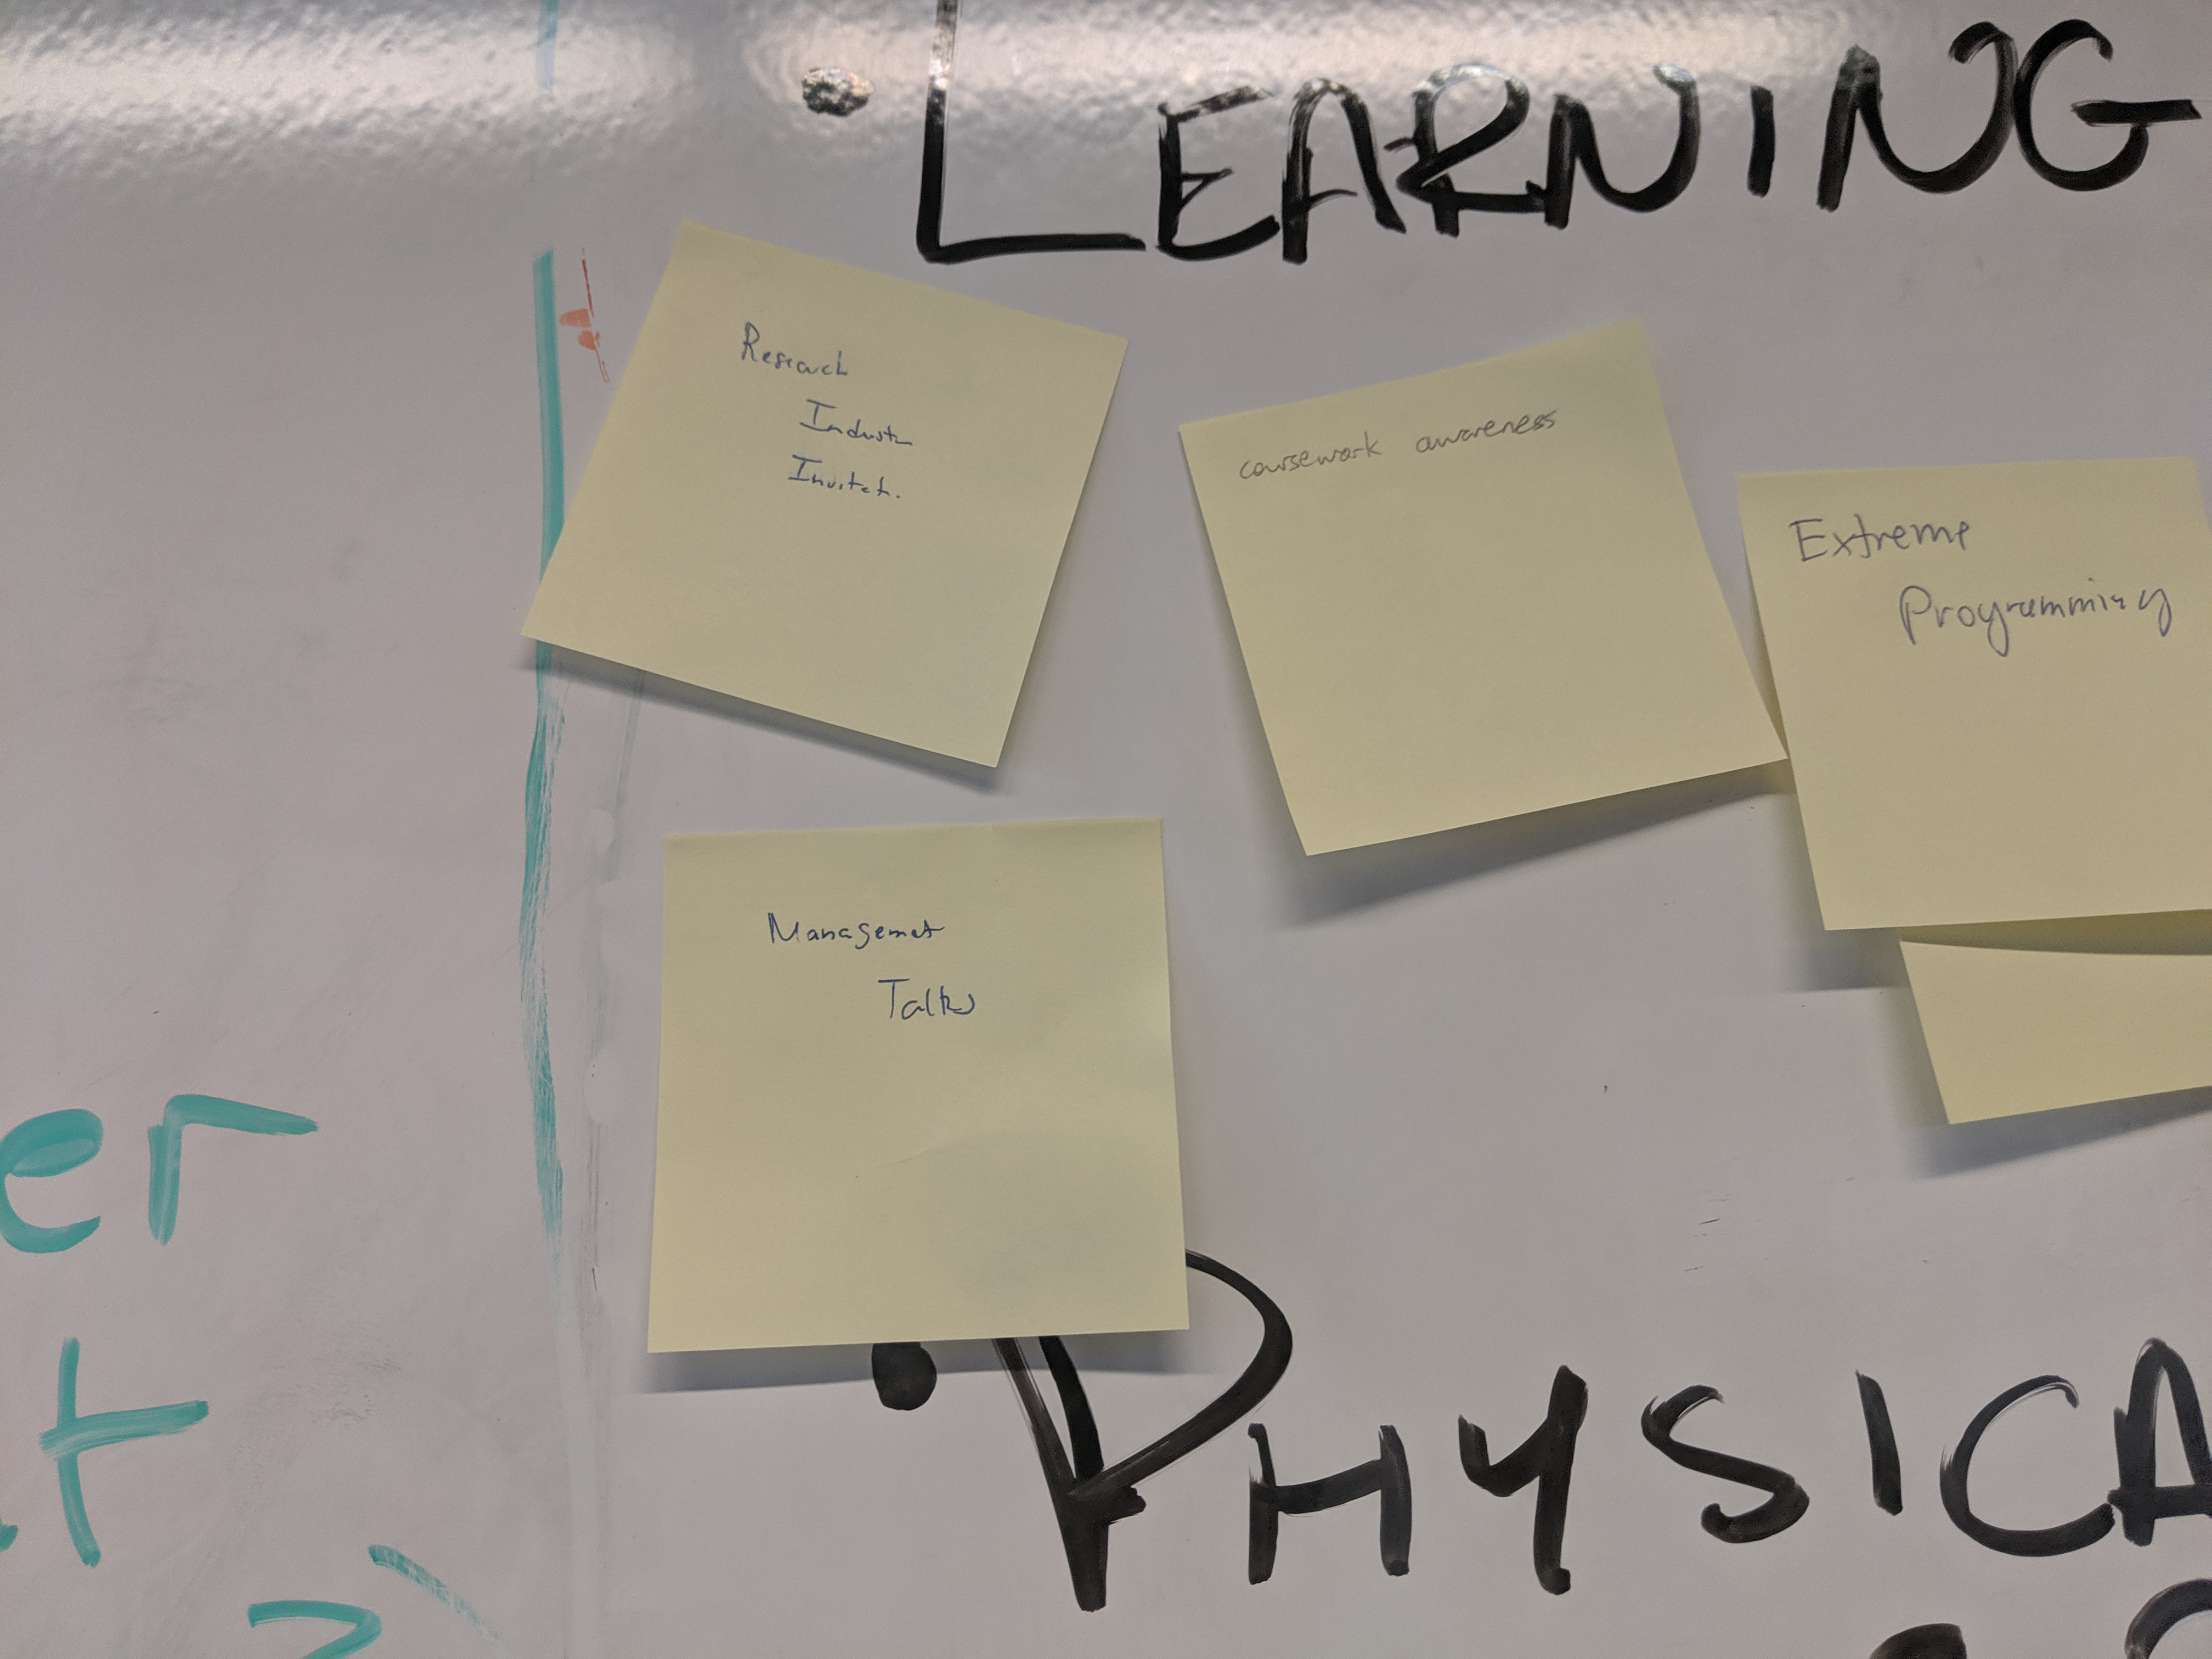 LEARNING
Research
Industr
Invitat.
coursework awareness
Extreme
Programming
Managemet
Talks
er
t
PHYSICA